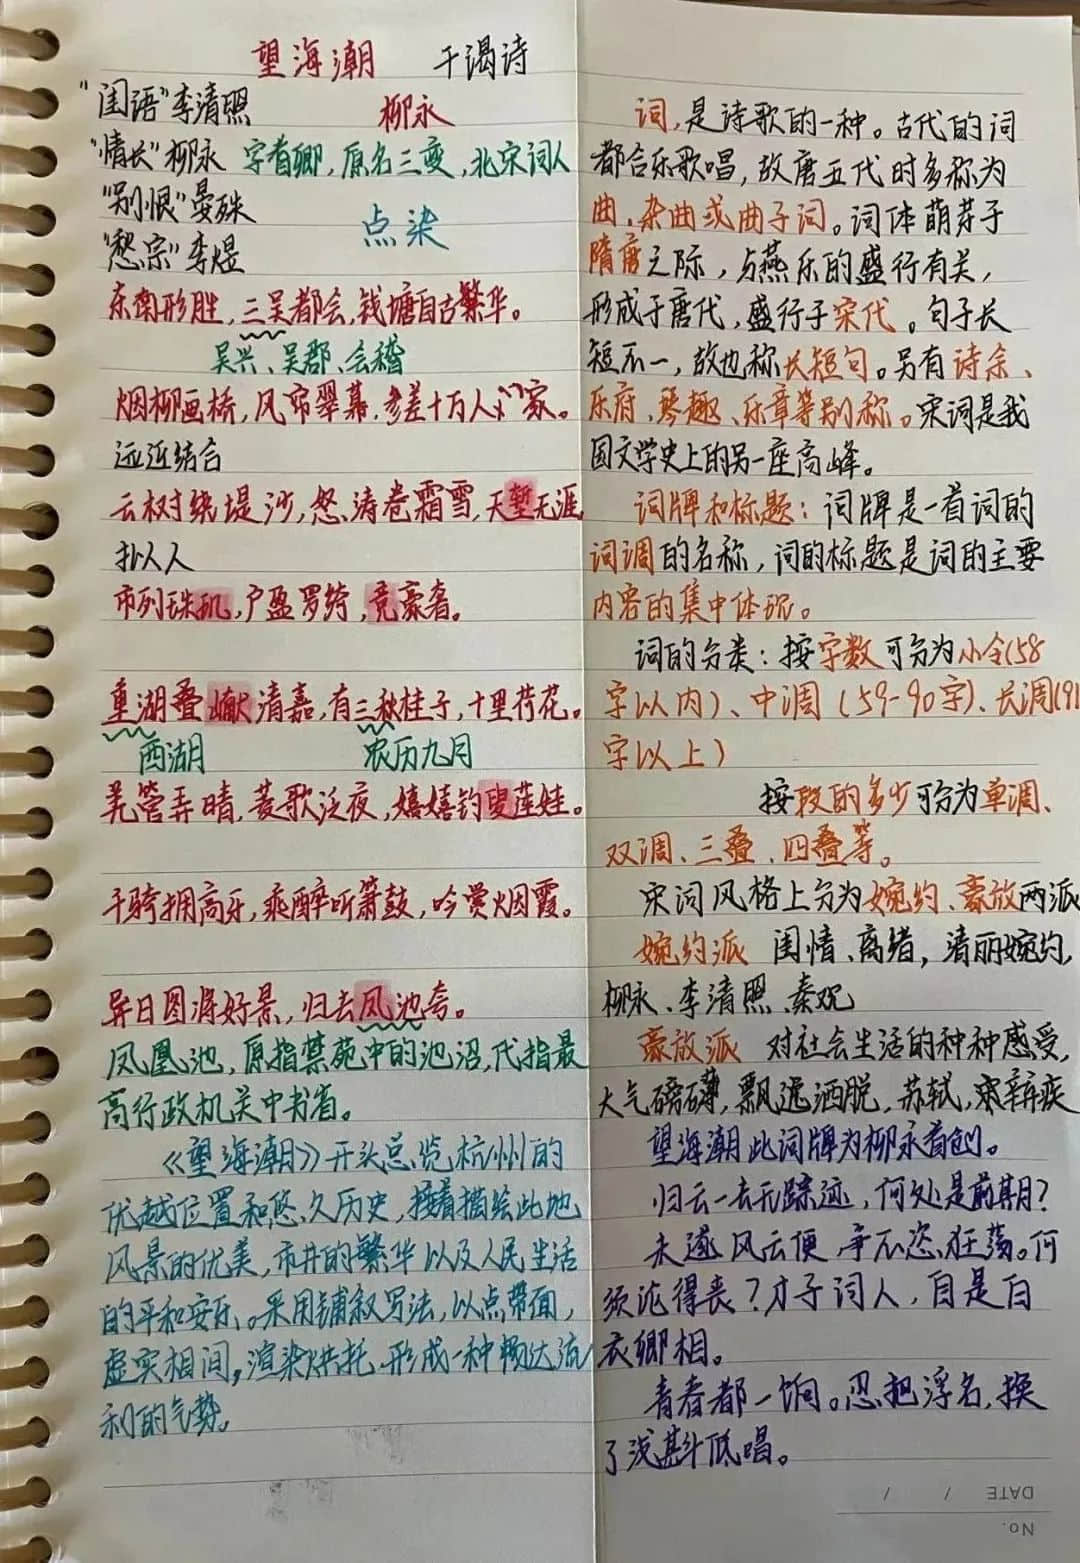 望海潮 干谒诗
"闺语"李清照 柳永
"情长"柳永 字耆卿，原名三变，北宋词人
"别恨"晏殊
点染
"愁宗"李煜
东南形胜，三吴都会，钱塘自古繁华。
吴兴、吴郡、会稽
烟柳画桥，风帘翠幕，参差十万人家。
远近结合
云树绕堤沙，怒涛卷霜雪，天堑无涯
拟人
市列珠玑，户盈罗绮，竞豪奢。
重湖叠巘清嘉，有三秋桂子，十里荷花。
西湖 农历九月
羌管弄晴，菱歌泛夜，嬉嬉钓叟莲娃。
千骑拥高牙，乘醉听箫鼓，吟赏烟霞。
异日图将好景，归去凤池夸。
凤凰池，原指禁苑中的池沼，代指最
高行政机关中书省。
《望海潮》开头总览杭州的
优越位置和悠久历史，接着描绘此地
风景的优美，市井的繁华以及人民生活
的平和安乐。采用铺叙写法，以点带面，
虚实相间，渲染烘托，形成一种畅达流
利的气势。
词，是诗歌的一种。古代的词
都合乐歌唱，故唐五代时多称为
曲、杂曲或曲子词。词体萌芽于
隋唐之际，与燕乐的盛行有关，
形成于唐代，盛行于宋代。句子长
短不一，故也称长短句。另有诗余、
乐府、琴趣、乐章等别称。宋词是我
国文学史上的另一座高峰。
词牌和标题：词牌是一首词的
词调的名称，词的标题是词的主要
内容的集中体现。
词的分类：按字数可分为小令(58
字以内)、中调(59-90字)、长调(91
字以上)
按段的多少可分为单调、
双调、三叠、四叠等。
宋词风格上分为婉约、豪放两派
婉约派 闺情、离绪，清丽婉约，
柳永、李清照、秦观
豪放派 对社会生活的种种感受，
大气磅礴，飘逸洒脱，苏轼，辛弃疾
望海潮此词牌为柳永首创。
归云一去无踪迹，何处是前期？
未遂风云便，争不恣狂荡。何
须论得丧？才子词人，自是白
衣卿相。
青春都一饷。忍把浮名，换
了浅斟低唱。
DATE / /
No.